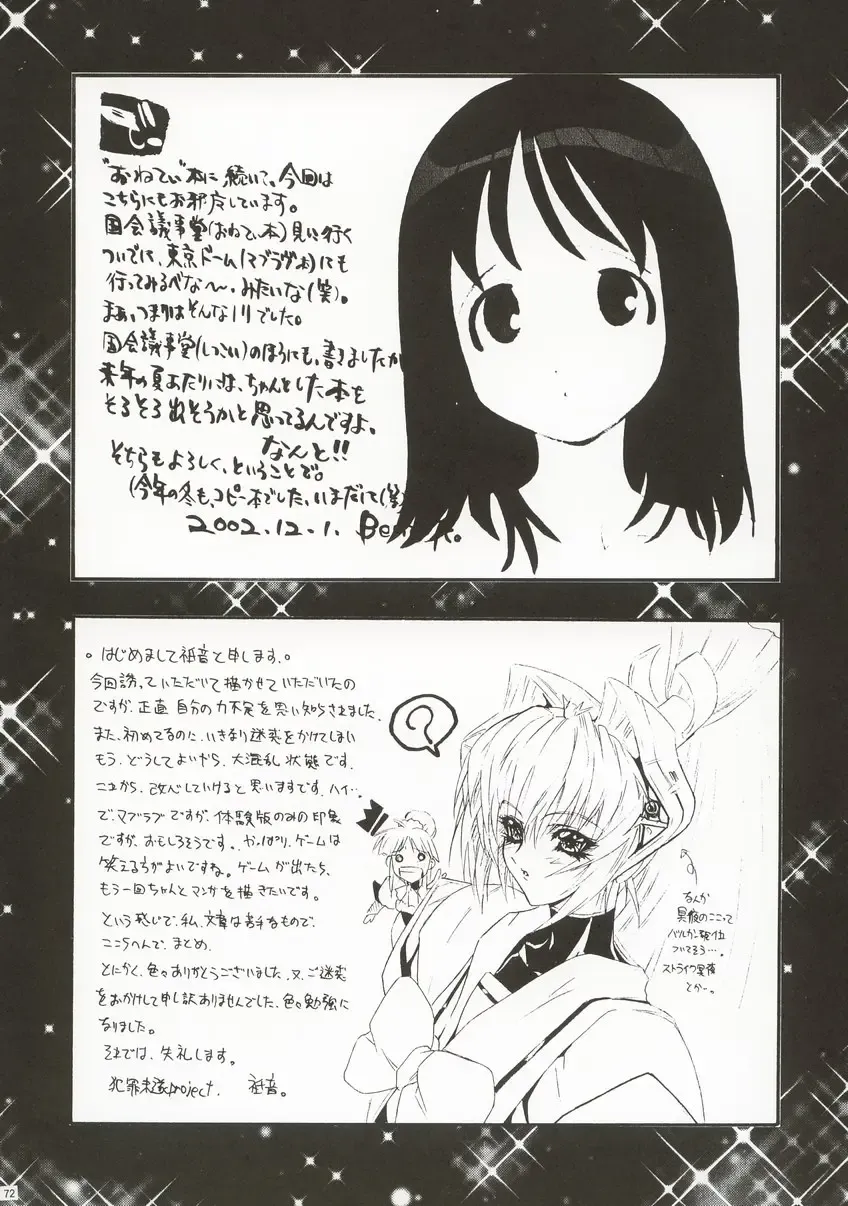 "おねてぃ"本に続いて、今回は
こちらにもお邪魔しています。
国会議事堂(おねてぃ本)見に行く
ついでに、東京ドーム(マブラヴ本)にも
行ってみるべな〜、みたいな(笑)。
まぁ、つまりはそんなノリでした。
国会議事堂(しつこい)のほうにも、書きましたが
来年の夏あたりには、ちゃんとした本を
そろそろ出そうかと思ってるんですよ。
なんと!!
そちらもよろしく、ということで。
(今年の冬も、コピー本でした、いまだに(笑)
2002.12.1.
。はじめまして祇音と申します。。
今回誘っていただいて描かせていただいたの
ですが、正直 自分の力不足を思い知らされました。
また、初めてなのに、いきなり迷惑をかけてしまい
もう、どうしてよいやら、大混乱状態です。
これから、改心していけると思いますです、ハイ…
で、マブラブですが、体験版のみの印象
ですが、おもしろそうです。やっぱり、ゲームは
笑える方がよいですね。ゲームが出たら、
もう一回ちゃんとマンガを描きたいです。
という感じで、私、文章は苦手なもので、
ここらへんで、まとめ、
とにかく、色々ありがとうございました、又、ご迷惑
をおかけして申し訳ありませんでした、色々勉強に
なりました。
それでは、失礼します。
犯罪未遂project. 祇音。
?
なんか
冥夜のここって
バルカン砲位
ついてそう…。
ストライク冥夜
とかー。
72